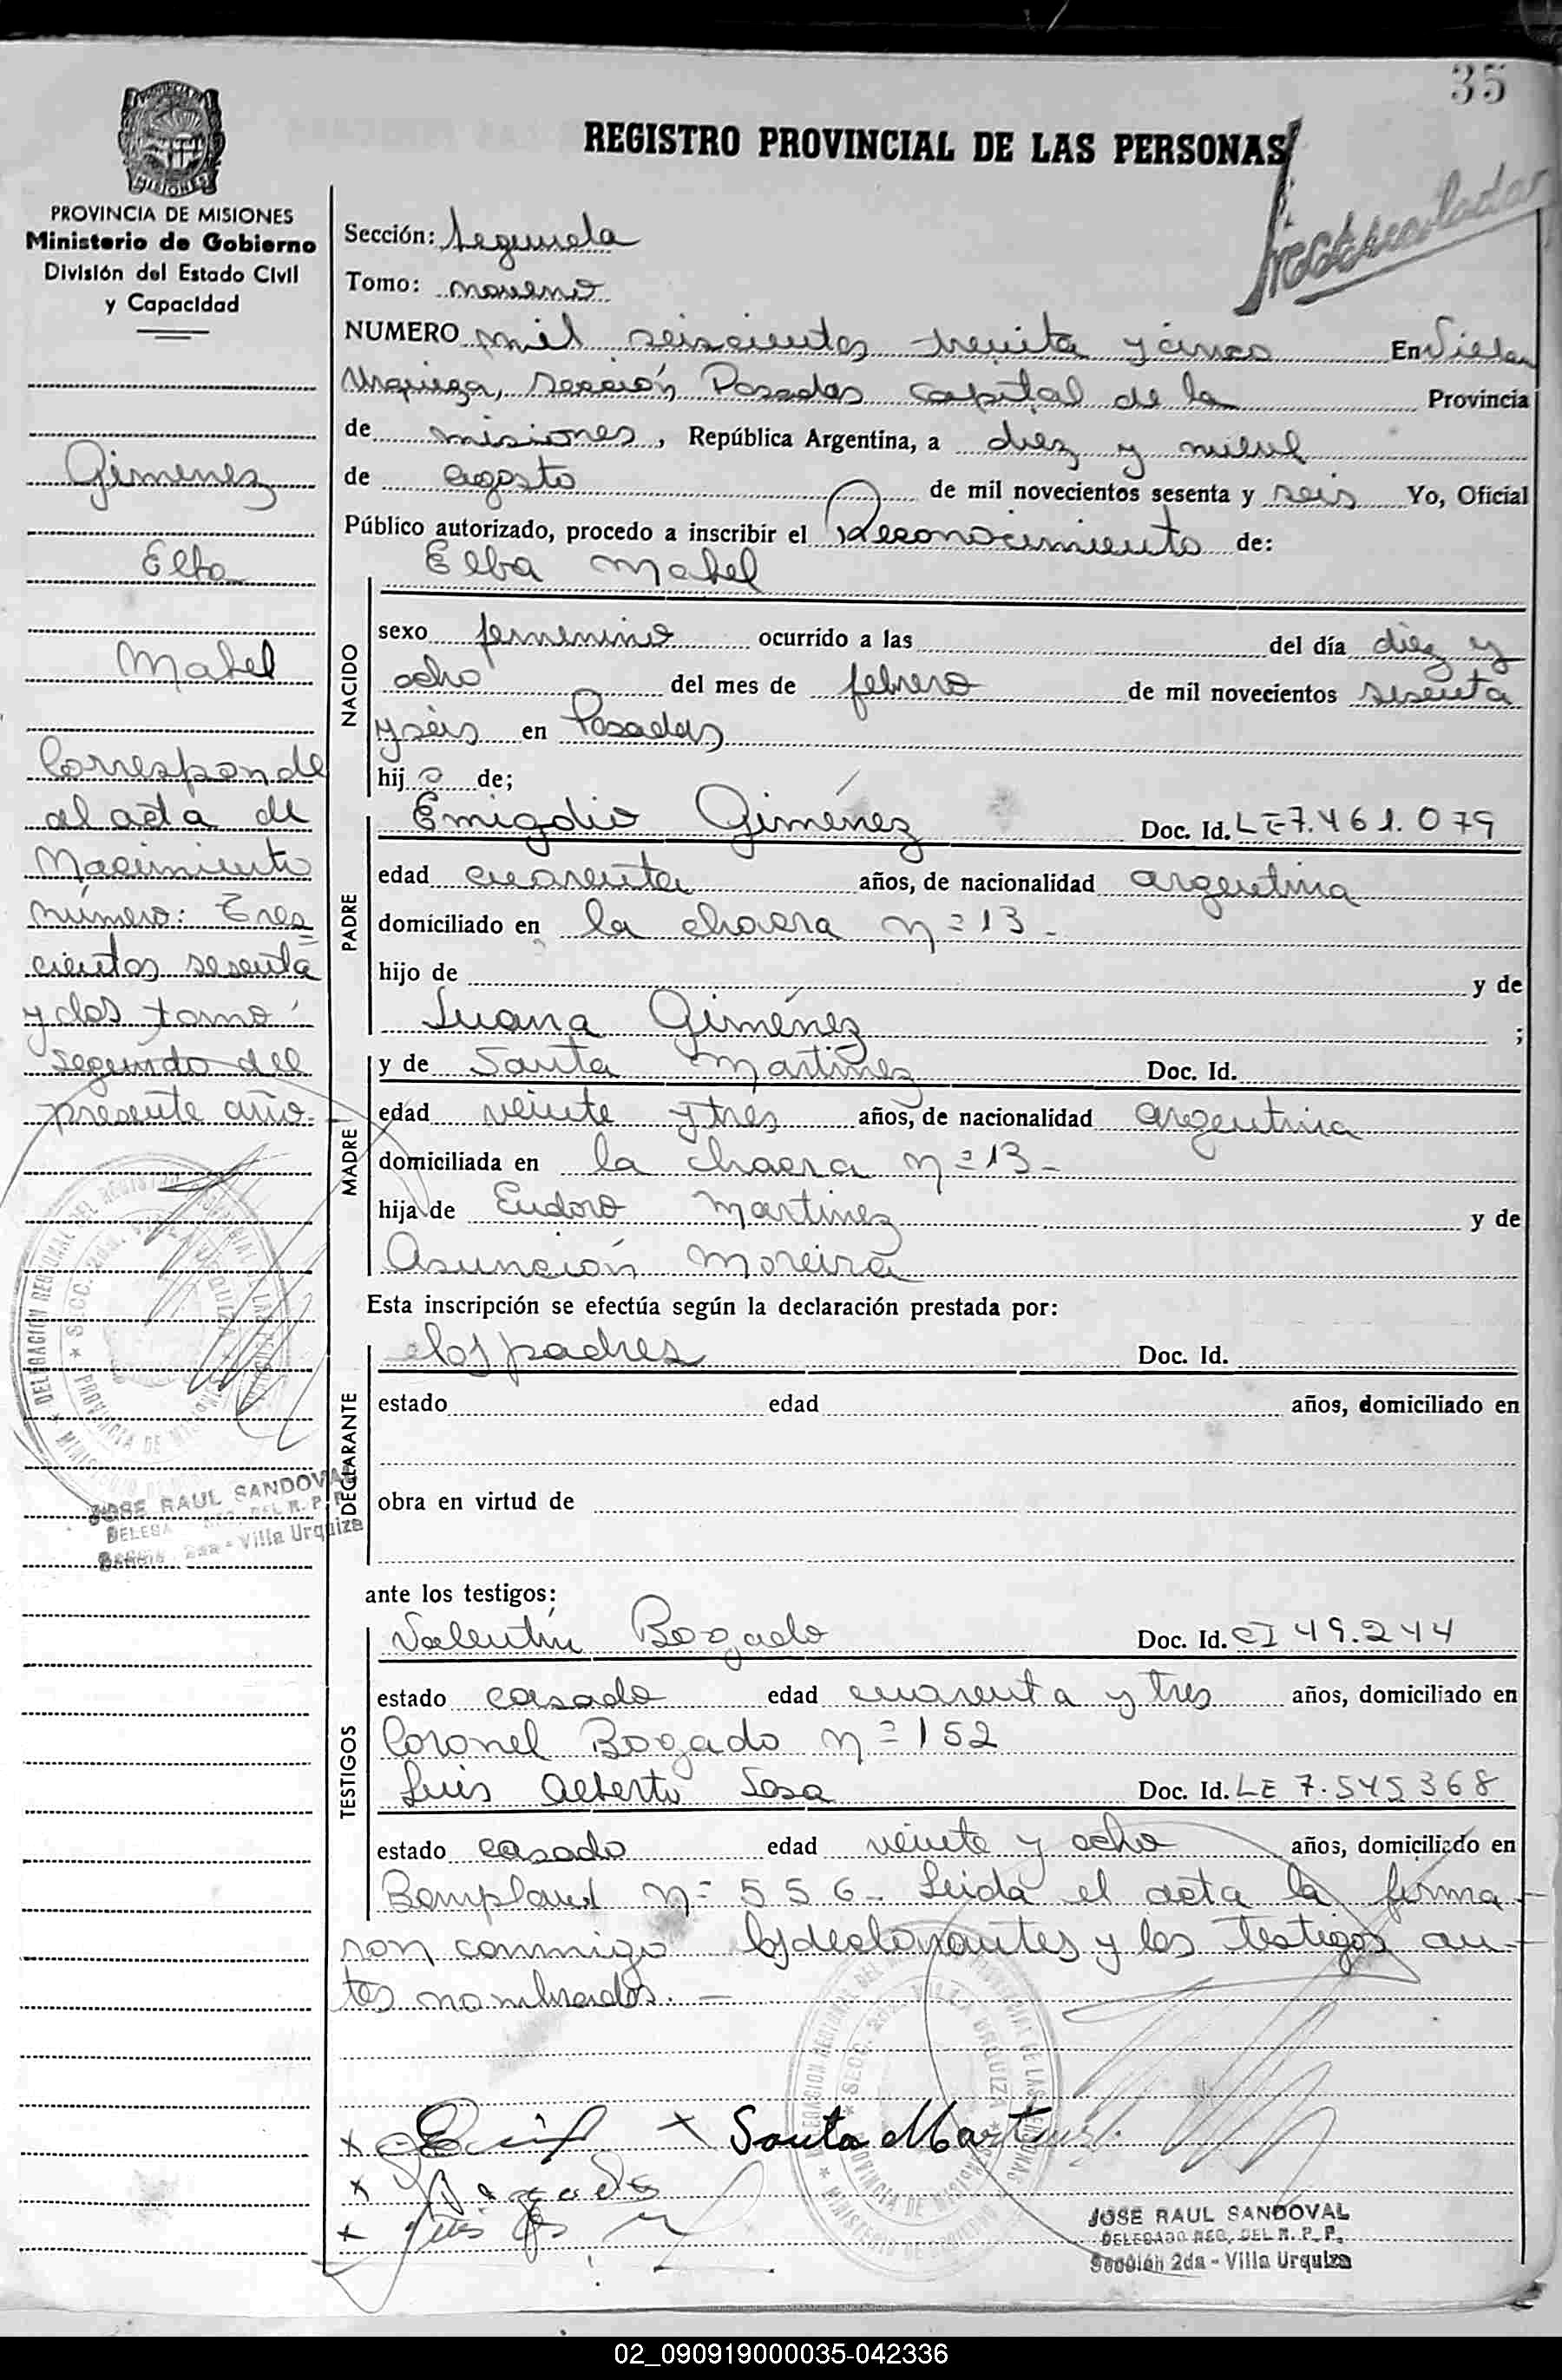 35
REGISTRO PROVINCIAL DE LAS PERSONAS
MISIONES
PROVINCIA DE MISIONES
Ministerio de Gobierno
División del Estado Civil
y Capacidad
Gimenez
Elba
Mabel
Corresponde
al acta de
Nacimiento
número: Tres
cientos sesenta
y dos tomo
segundo del
presente año.
JOSE RAUL SANDOVAL
DELEGA REG. DEL R. P. P.
2da - Villa Urquiza
Sección: Segunda
Tomo: noveno
NUMERO mil seiscientos treinta y cinco En Villa
Urquiza, Sección Posadas capital de la Provincia
de misiones, República Argentina, a diez y nueve
de agosto de mil novecientos sesenta y seis Yo, Oficial
Público autorizado, procedo a inscribir el Reconocimiento de:
Elba Mabel
NACIDO
sexo femenino ocurrido a las del día diez y
ocho del mes de febrero de mil novecientos sesenta
y seis en Posadas
hij a de;
PADRE
Emigdio Giménez Doc. Id. LE 7.461.079
edad cuarenta años, de nacionalidad argentina
domiciliado en la chacra nº 13 -
hijo de y de
Juana Giménez ;
MADRE
y de Santa Martinez Doc. Id.
edad veinte y tres años, de nacionalidad argentina
domiciliada en la chacra nº 13 -
hija de Eudoro Martinez y de
Asunción Moreira
Esta inscripción se efectúa según la declaración prestada por:
DECLARANTE
los padres Doc. Id.
estado edad años, domiciliado en
obra en virtud de
ante los testigos:
TESTIGOS
Valentín Bogado Doc. Id. CI 49.244
estado casado edad cuarenta y tres años, domiciliado en
Coronel Bogado nº 152
Luis Alberto Sosa Doc. Id. LE 7.545368
estado casado edad veinte y ocho años, domiciliado en
Bompland nº 556 - Leida el acta la firma
ron conmigo los declarantes y los testigos an-
tes nombrados. -
Santa Martinez
JOSE RAUL SANDOVAL
DELEGADO REG. DEL R. P. P.
Sección 2da - Villa Urquiza
02_090919000035-042336